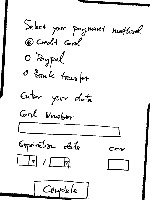 Select your payment method
Credit Card
Paypal
Bank transfer
Enter your data
Card Number
Expiration date CVV
/
Complete